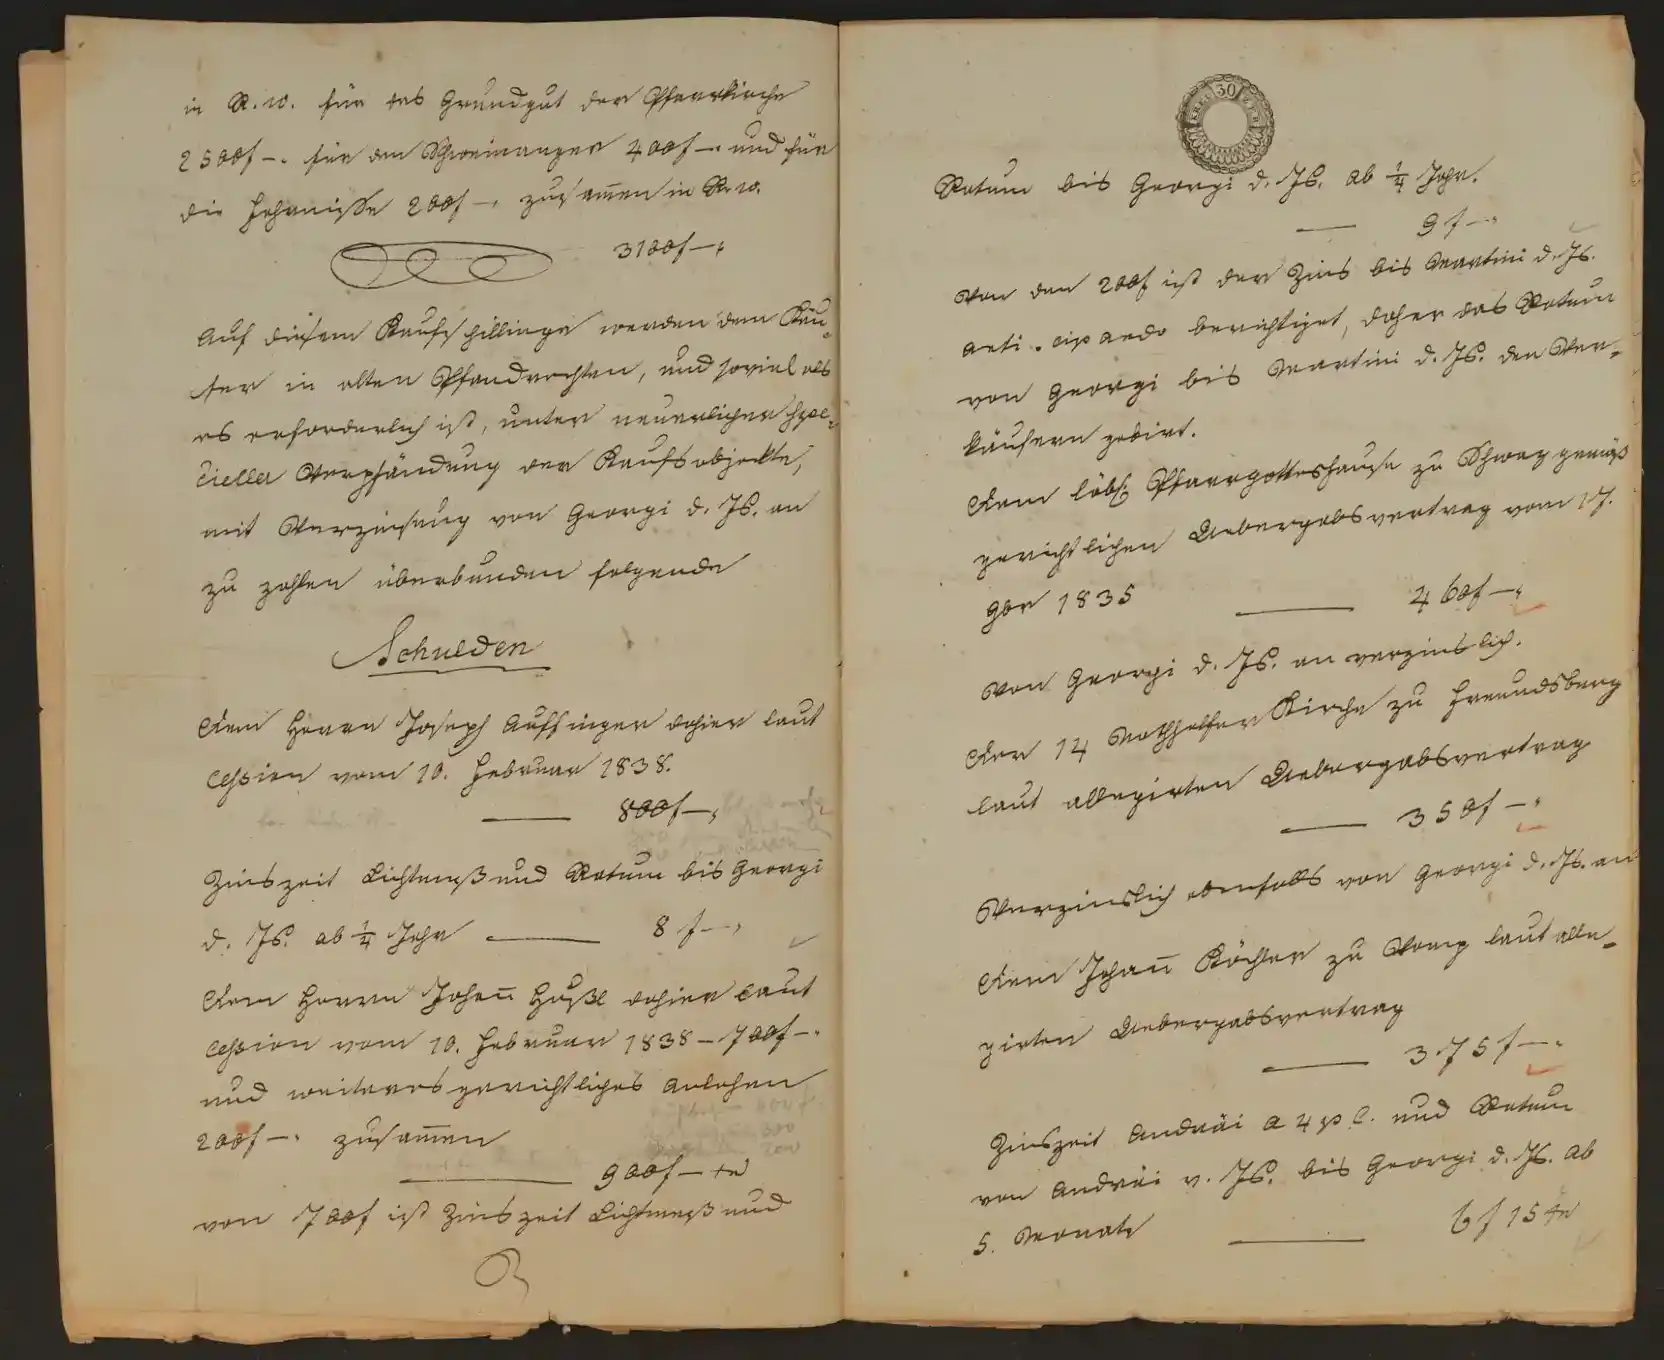 in R.W. für das Grundgut der Pfarrkirche
2500f –. für den Schweinanger 400f –. und für
die Fahrniße 200f –. zusam̅en in R.W.
3100f –.
Auf diesem Kaufschillinge werden dem Käu-
fer in alten Pfandrechten, und soviel als
es erforderlich ist, unter neuerlicher spe-
cieller Verpfändung der Kaufsobjekte,
mit Verzinsung von Georgi d. Js. an
zu zahlen überbunden folgende
Schulden
Dem Herrn Joseph Auffinger dahier laut
Cession vom 10. Februar 1838.
800f –.
Zinszeit Lichtmeß und Ratum bis Georgi
d. Js. ab ¼ Jahr 8 f –.
Dem Herrn Johan̅ Hußl dahier laut
Cession vom 10. Februar 1838 – 700f –.
und weiteres gerichtliches Anlehen
200f –. zusam̅en
900f – xr
von 700f ist Zinszeit Lichtmeß und
30
Ratum bis Georgi d. Js. ab ¼ Jahr.
9 f –.
Von den 200f ist der Zins bis Martini d. Js.
anticipando berichtiget, daher das Ratum
von Georgi bis Martini d. Js. den Ver-
käufern gebirt.
Dem löbl: Pfarrgotteshause zu Schwaz gemäß
gerichtlichen Uebergabsvertrag vom 17.
9ber 1835 460f –.
von Georgi d. Js. an verzinslich.
Der 14 Nothhelfer Kirche zu Freundsberg
laut allegirten Uebergabsvertrag
350f –.
Verzinslich ebenfalls von Georgi d. Js. an
Dem Johan̅ Köchler zu Vomp laut alle-
girten Uebergabsvertrag
375f –.
Zinszeit Andräi a 4 p C. und Ratum
von Andräi v. Js. bis Georgi d. Js. ab
5. Monate 6f 15 xr